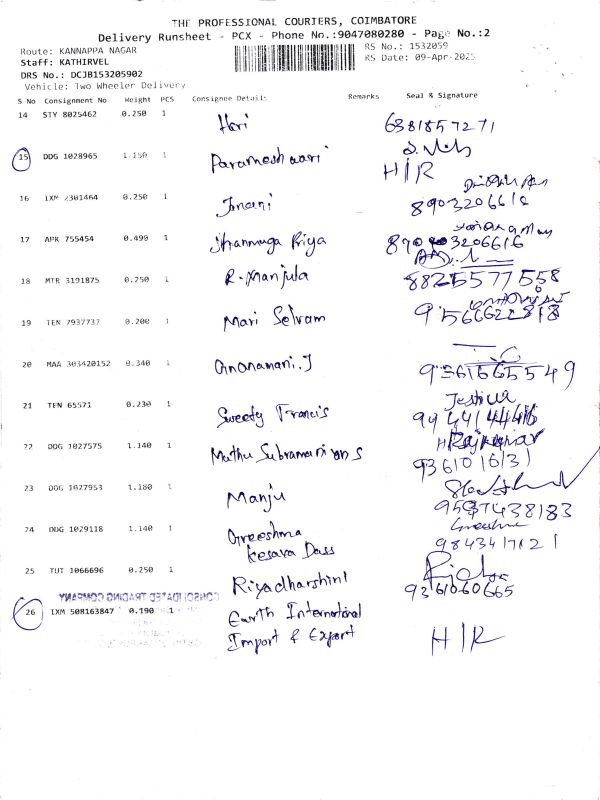 THE PROFESSIONAL COURIERS, COIMBATORE
Delivery Runsheet - PCX - Phone No.:9047080280 - Page No.:2
Route: KANNAPPA NAGAR RS No.: 1532059
Staff: KATHIRVEL RS Date: 09-Apr-2025
DRS No.: DCJB153205902
Vehicle: Two Wheeler Delivery
S No Consignment No Weight PCS Consignee Details Remarks Seal & Signature
14 STY 8025462 0.250 1 Hari 6381857271
15 DDG 1028965 1.150 1 Parameshwari H/R
16 IXM 2301464 0.250 1 Imani 8903206616
17 APR 755454 0.490 1 Shanmuga Priya 8903206616
18 MTR 3191875 0.250 1 R. Manjula 8825577558
19 TEN 7937737 0.200 1 Mari Selvam
20 MAA 303420152 0.340 1 Gnanamani.J 9361665549
21 TEN 65571 0.230 1 Sweety Francis Jeshua
22 DDG 1027575 1.140 1 Muthu Subramaniyan S Rajkumar
9361016131
23 DDG 1027953 1.180 1 Manju 9597438183
24 DDG 1029118 1.140 1 Greeshma Greeshma
Kesava Dass 9843417121
25 TUT 1066696 0.250 1 Riyadharshini 9361060665
26 IXM 508163847 0.190 1 Earth International
Import & Export H/R
CONSOLIDATED TRADING COMPANY